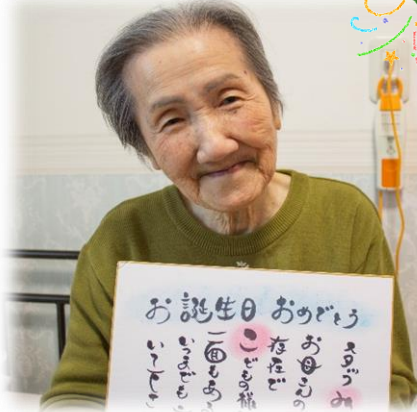 お誕生日 おめでとう
スタッフ
お母さんの
存在で
こどもの様
一面もあ
いつまでも
いて